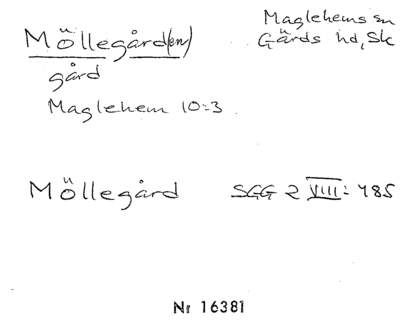 Möllegård(en)
Maglehems sn
Gärds hd, Sk
gård
Maglehem 10:3
Möllegård SGG 2 VIII: 485
Nr 16381